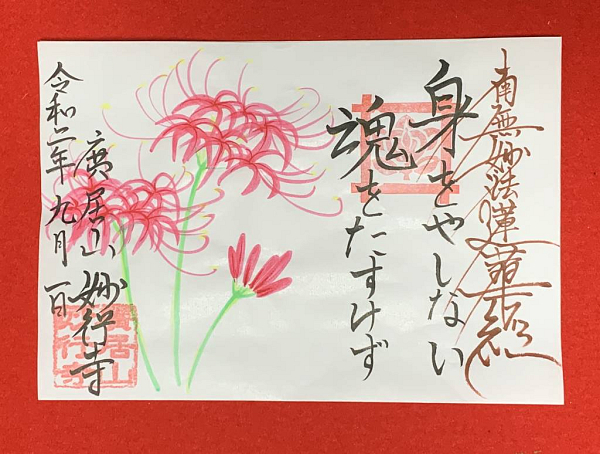 南無妙法蓮華経
身をやしない
魂をたすけず
廣居山 妙行寺
令和二年九月一日
廣居山
妙行寺